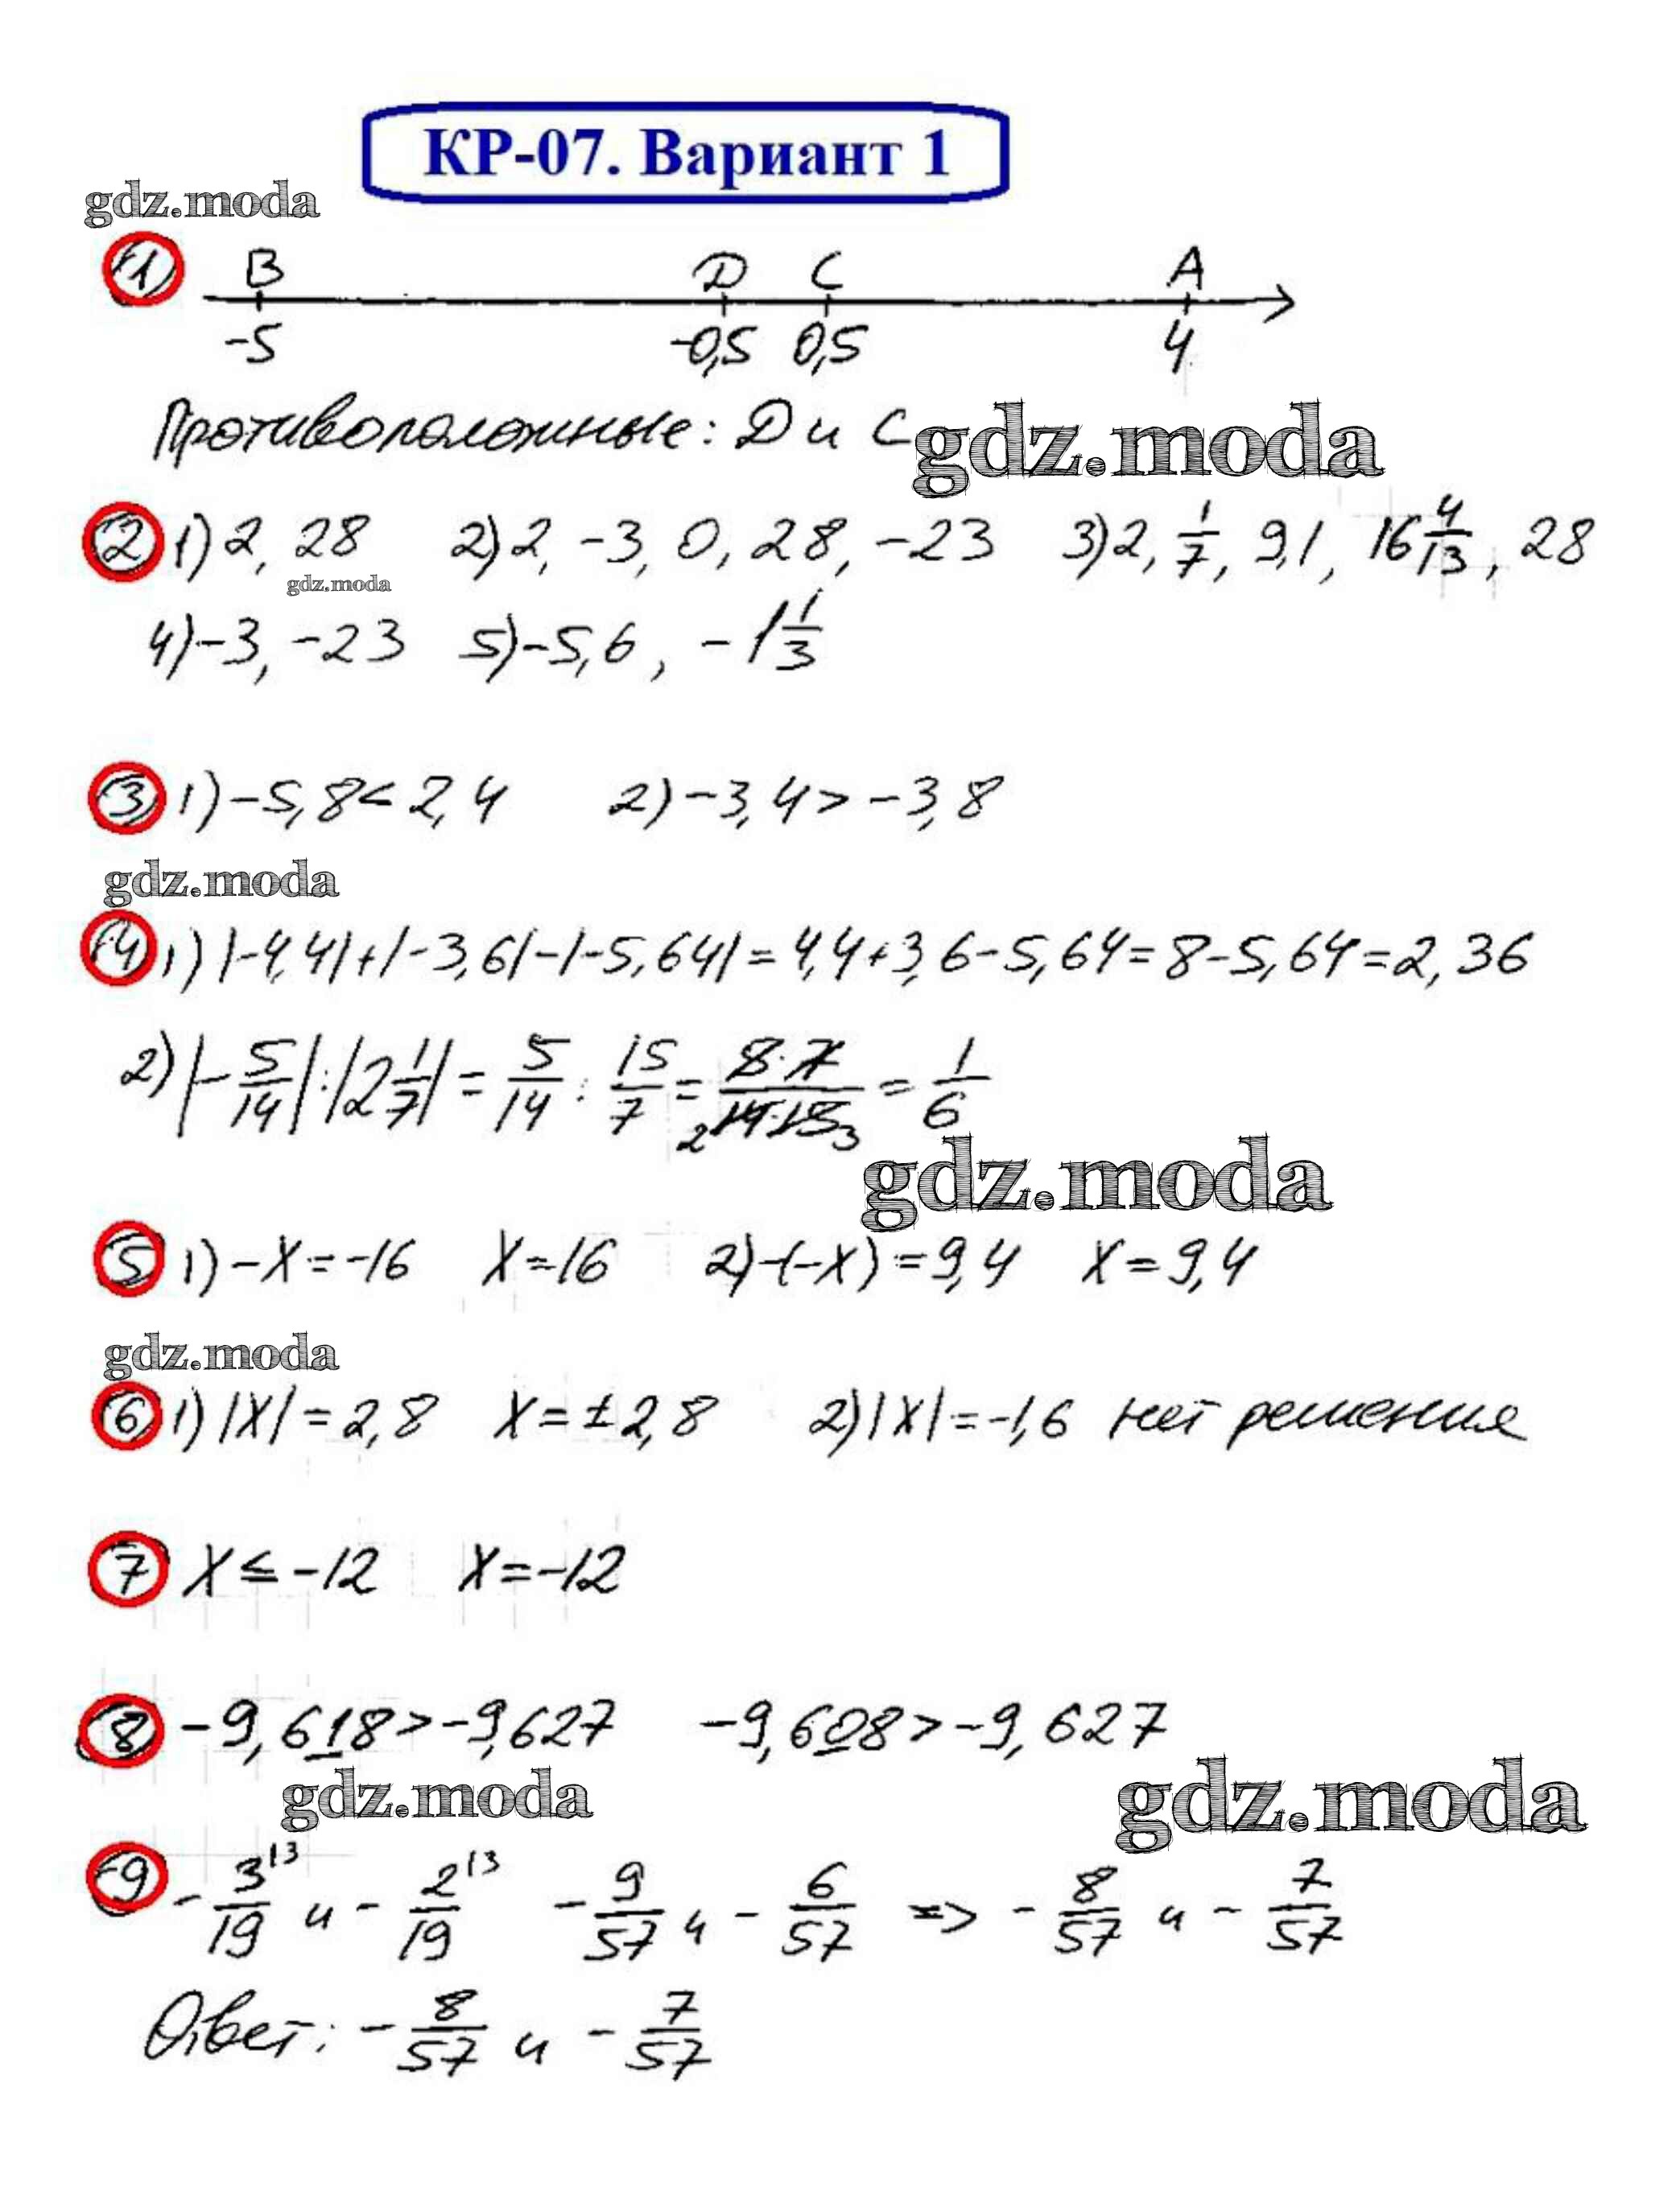 КР-07. Вариант 1
gdz.moda
1 B D C A
-5 -0,5 0,5 4
Противоположные: D и C
gdz.moda
2 1) 2, 28 2) 2, -3, 0, 28, -23 3) 2, 1/7, 9,1, 16 4/13, 28
gdz.moda
4) -3, -23 5) -5,6, -1 1/3
3 1) -5,8 < 2,4 2) -3,4 > -3,8
gdz.moda
4 1) |-4,4| + |-3,6| - |-5,64| = 4,4 + 3,6 - 5,64 = 8 - 5,64 = 2,36
2) |-5/14| : |2 1/7| = 5/14 : 15/7 = 5·7/14·15 2 3 = 1/6
gdz.moda
5 1) -X = -16 X = 16 2) -(-X) = 9,4 X = 9,4
gdz.moda
6 1) |X| = 2,8 X = ±2,8 2) |X| = -1,6 нет решения
7 X ≤ -12 X = -12
8 -9,618 > -9,627 -9,608 > -9,627
gdz.moda
gdz.moda
9 -3/19 |3 и -2/19 |3 -9/57 и -6/57 => -8/57 и -7/57
Ответ: -8/57 и -7/57